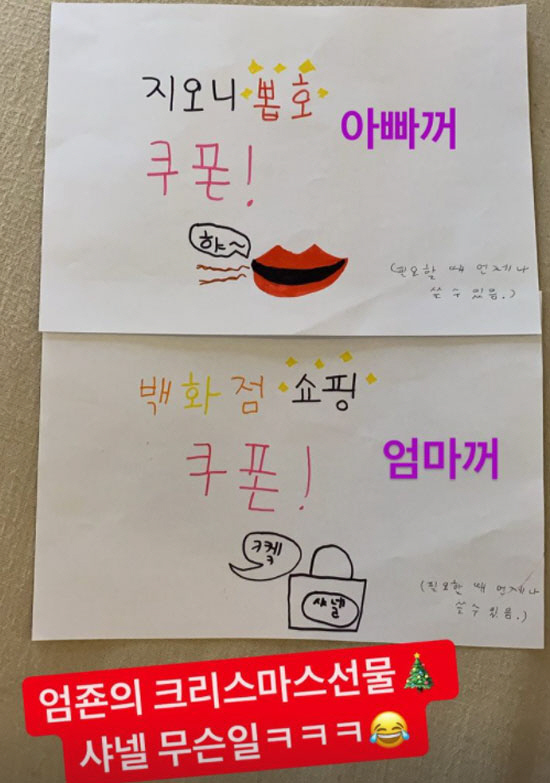 지오니 뽑호
아빠꺼
쿠폰!
햐~
(필요할 때 언제나
쓸 수 있음.)
백화점 쇼핑
쿠폰!
엄마꺼
ㅋ켘
샤넬
(필요한 때 언제나
쓸 수 있음.)
엄죤의 크리스마스선물🎄
샤넬 무슨일ㅋㅋㅋ😂